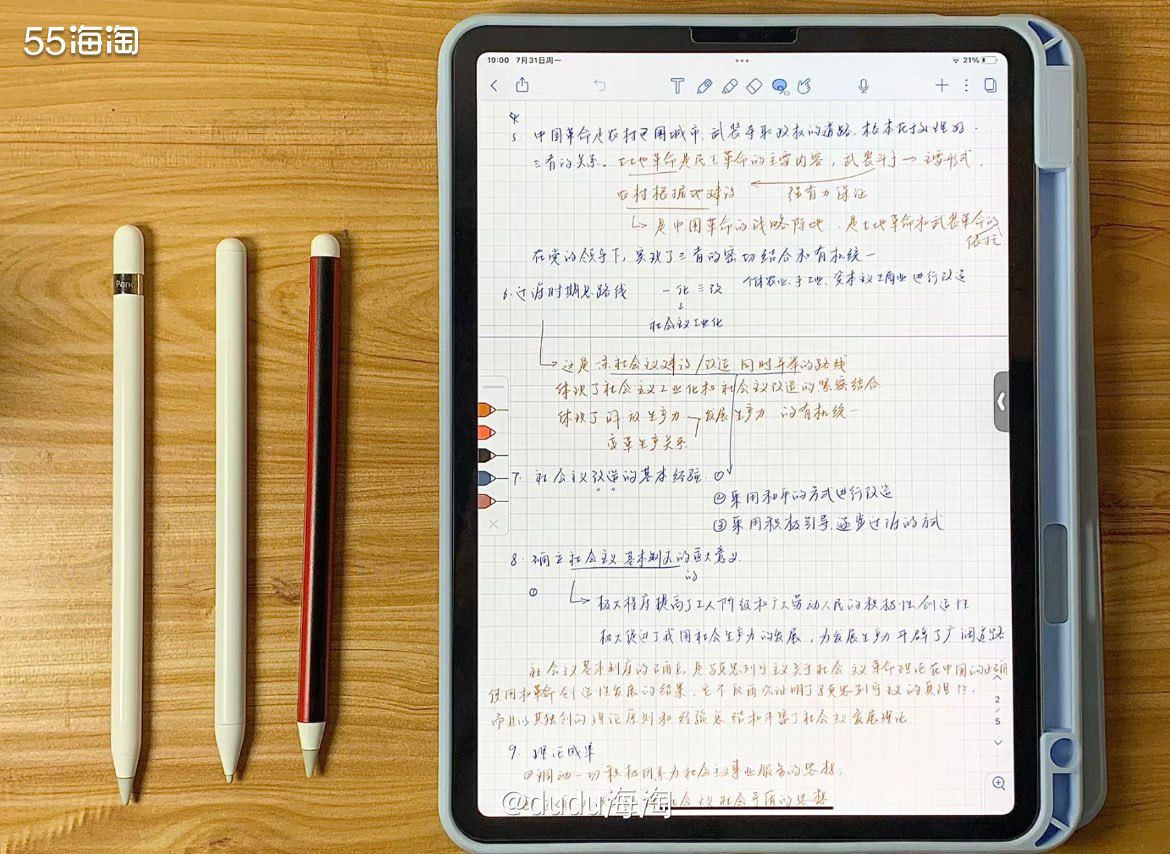 55海淘
19:00 7月31日周一
21%
5 中国革命走农村包围城市,武装夺取政权的道路,根本在于处理好
三者的关系。土地革命是民主革命的主要内容,武装斗争→主要形式
农村根据地建设 强有力保证
是中国革命的战略阵地,是土地革命和武装革命的
依托
在党的领导下,实现了三者的密切结合和有机统一
6.过渡时期总路线 一化三改 个体农业、手工业、资本主义工商业进行改造
社会主义工业化
这是一条社会主义建设/改造 同时并举的路线
体现了社会主义工业化和社会主义改造的紧密结合
体现了解放生产力 发展生产力 的有机统一
变革生产关系
7. 社会主义改造的基本经验: ①
②采用和平的方式进行改造
③采用积极引导、逐步过渡的方式
8. 确立社会主义基本制度的重大意义
的
①
极大程度提高了工人阶级和广大劳动人民的积极性创造性
极大促进了我国社会生产力的发展,为发展生产力开辟了广阔道路
社会主义基本制度的确立,是马克思列宁主义关于社会主义革命理论在中国的正确
使用和革命创造性发展的结果,它不仅再次证明了马克思列宁主义的真理性,
而且以其独创的理论原则和经验总结和丰富了社会主义发展理论
2
5
9. 理论成果
①调动一切积极因素为社会主义事业服务的思想;
社会主义社会矛盾的思想
@dudu海淘
Penc